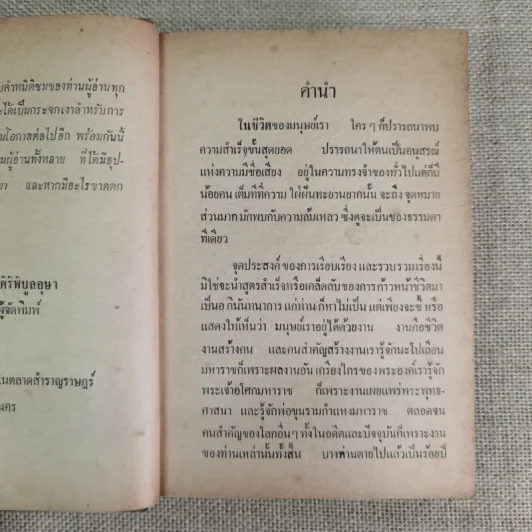 บคำหนิติชมของท่านผู้อ่านทุก
ะได้เป็นกระจกเงาสำหรับการ
มโอกาสต่อไปอีก พร้อมกันนี้
มผู้อ่านทั้งหลาย ที่ได้มีอุป-
า และหากมีอะไรขาดตก
ศิริพิบูลอุษา
ผู้จัดพิมพ์
นตลาดสำราญราษฎร์
นคร
คำนำ
ในชีวิตของมนุษย์เรา ใคร ๆ ก็ปรารถนาพบ
ความสำเร็จขั้นสุดยอด ปรารถนาให้ตนเป็นอนุสรณ์
แห่งความมีชื่อเสียง อยู่ในความทรงจำของทั่วไปแต่ก็มี
น้อยคน เต็มทีที่ความใฝ่ฝันทะยานยากนั้น จะถึงจุดหมาย
ส่วนมากมักพบกับความล้มเหลว ซึ่งดูจะเป็นของธรรมดา
ทีเดียว
จุดประสงค์ของการเรียบเรียง และรวบรวมเรื่องนี้
มิใช่จะนำสูตรสำเร็จหรือเคล็ดลับของการก้าวหน้าชีวิตมา
เป็นอภินันทนาการ แก่ท่าน ก็หาไม่เป็น แต่เพียงจะชี้ หรือ
แสดงให้เห็นว่า มนุษย์เราอยู่ได้ด้วยงาน งานคือชีวิต
งานสร้างคน และคนสำคัญสร้างงานเรารู้จักนะโปเลียน
มหาราชก็เพราะผลงานอันเกรียงไกรของพระองค์เรารู้จัก
พระเจ้าอโศกมหาราช ก็เพราะงานเผยแพร่พระพุทธ-
ศาสนา และรู้จักพ่อขุนรามกำแหงมหาราช ตลอดจน
คนสำคัญของโลกอื่นๆ ทั้งในอดีตและปัจจุบันก็เพราะงาน
ของท่านเหล่านั้นทั้งสิ้น บางท่านตายไปแล้วเป็นร้อยปี